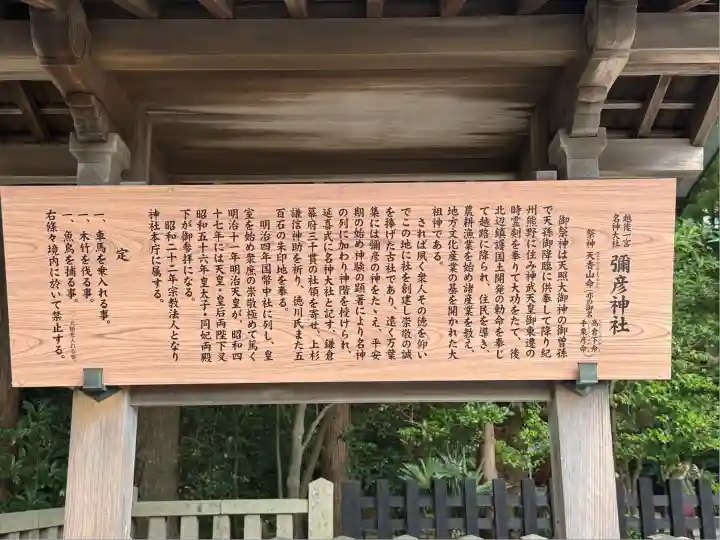 越後一宮
名神大社
彌彦神社
祭神 天香山命
亦の御名
高倉下命
手栗彦命
御祭神は天照大御神の御曽孫
で天孫御降臨に供奉して降り紀
州熊野に住み神武天皇御東遷の
時霊剣を奉りて大功をたて、後
北辺鎮護国土開発の勅命を奉じ
て越路に降られ、住民を導き、
農耕漁業を始め諸産業を教え、
地方文化産業の基を開かれた大
祖神である。
されば夙く後人その徳を仰い
でこの地に社を創建し崇敬の誠
を捧げた古社であり、遠く万葉
集には彌彦の神をたゝえ、平安
期の始め神験の顕著により名神
の列に加わり神階を授けられ、
延喜式に名神大社と記す、鎌倉
幕府三千貫の社領を寄せ、上杉
謙信神助を祈り、徳川氏また五
百石の朱印地を奉る。
明治四年国幣中社に列し、皇
室を始め衆庶の崇敬極めて篤く
明治十一年明治天皇が、昭和四
十七年には天皇・皇后両陛下又
昭和五十六年皇太子・同妃両殿
下が御参拝になる。
昭和二十二年宗教法人となり
神社本庁に属する。
定
一、車馬を乗入れる事。
一、木竹を伐る事。
一、魚鳥を捕る事。
右條々境内に於いて禁止する。